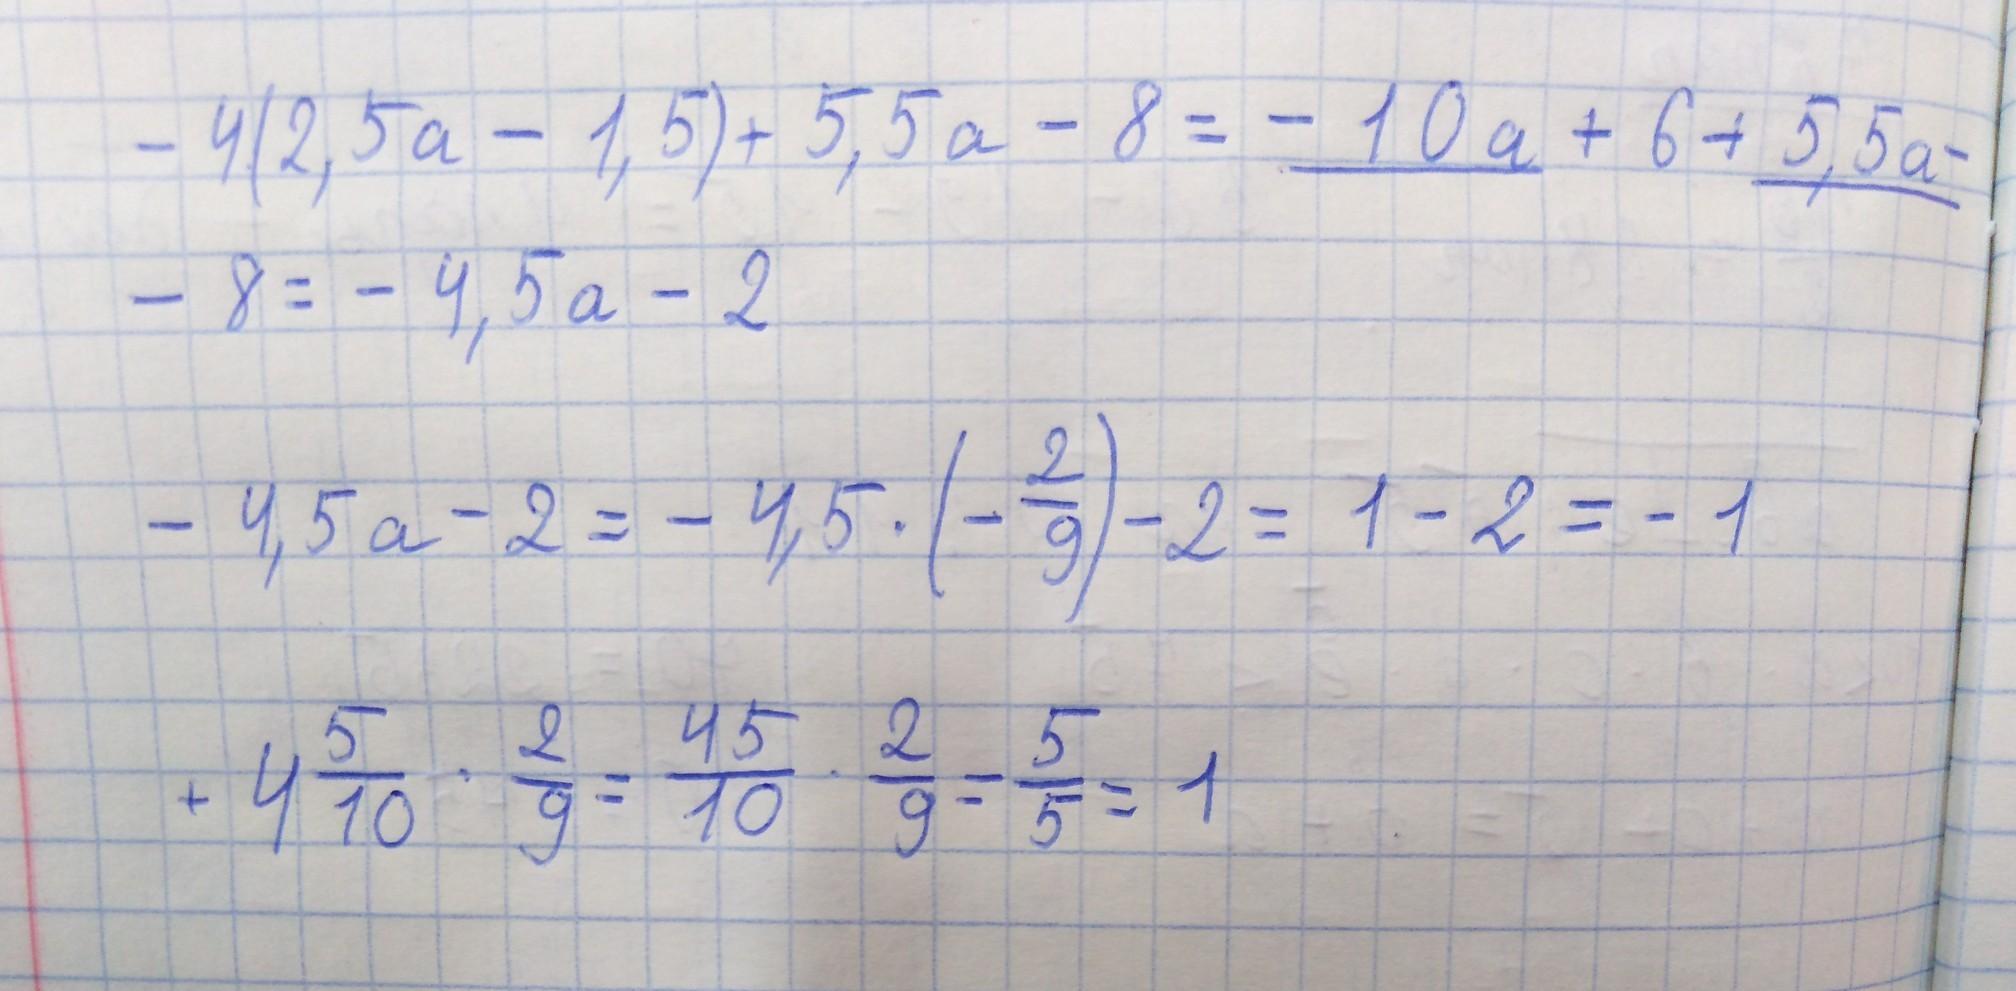 - 4(2,5a - 1,5) + 5,5a - 8 = - 10a + 6 + 5,5a -
- 8 = - 4,5a - 2
- 4,5a - 2 = - 4,5 · (- 2/9) - 2 = 1 - 2 = - 1
+ 4 5/10 · 2/9 = 45/10 · 2/9 = 5/5 = 1